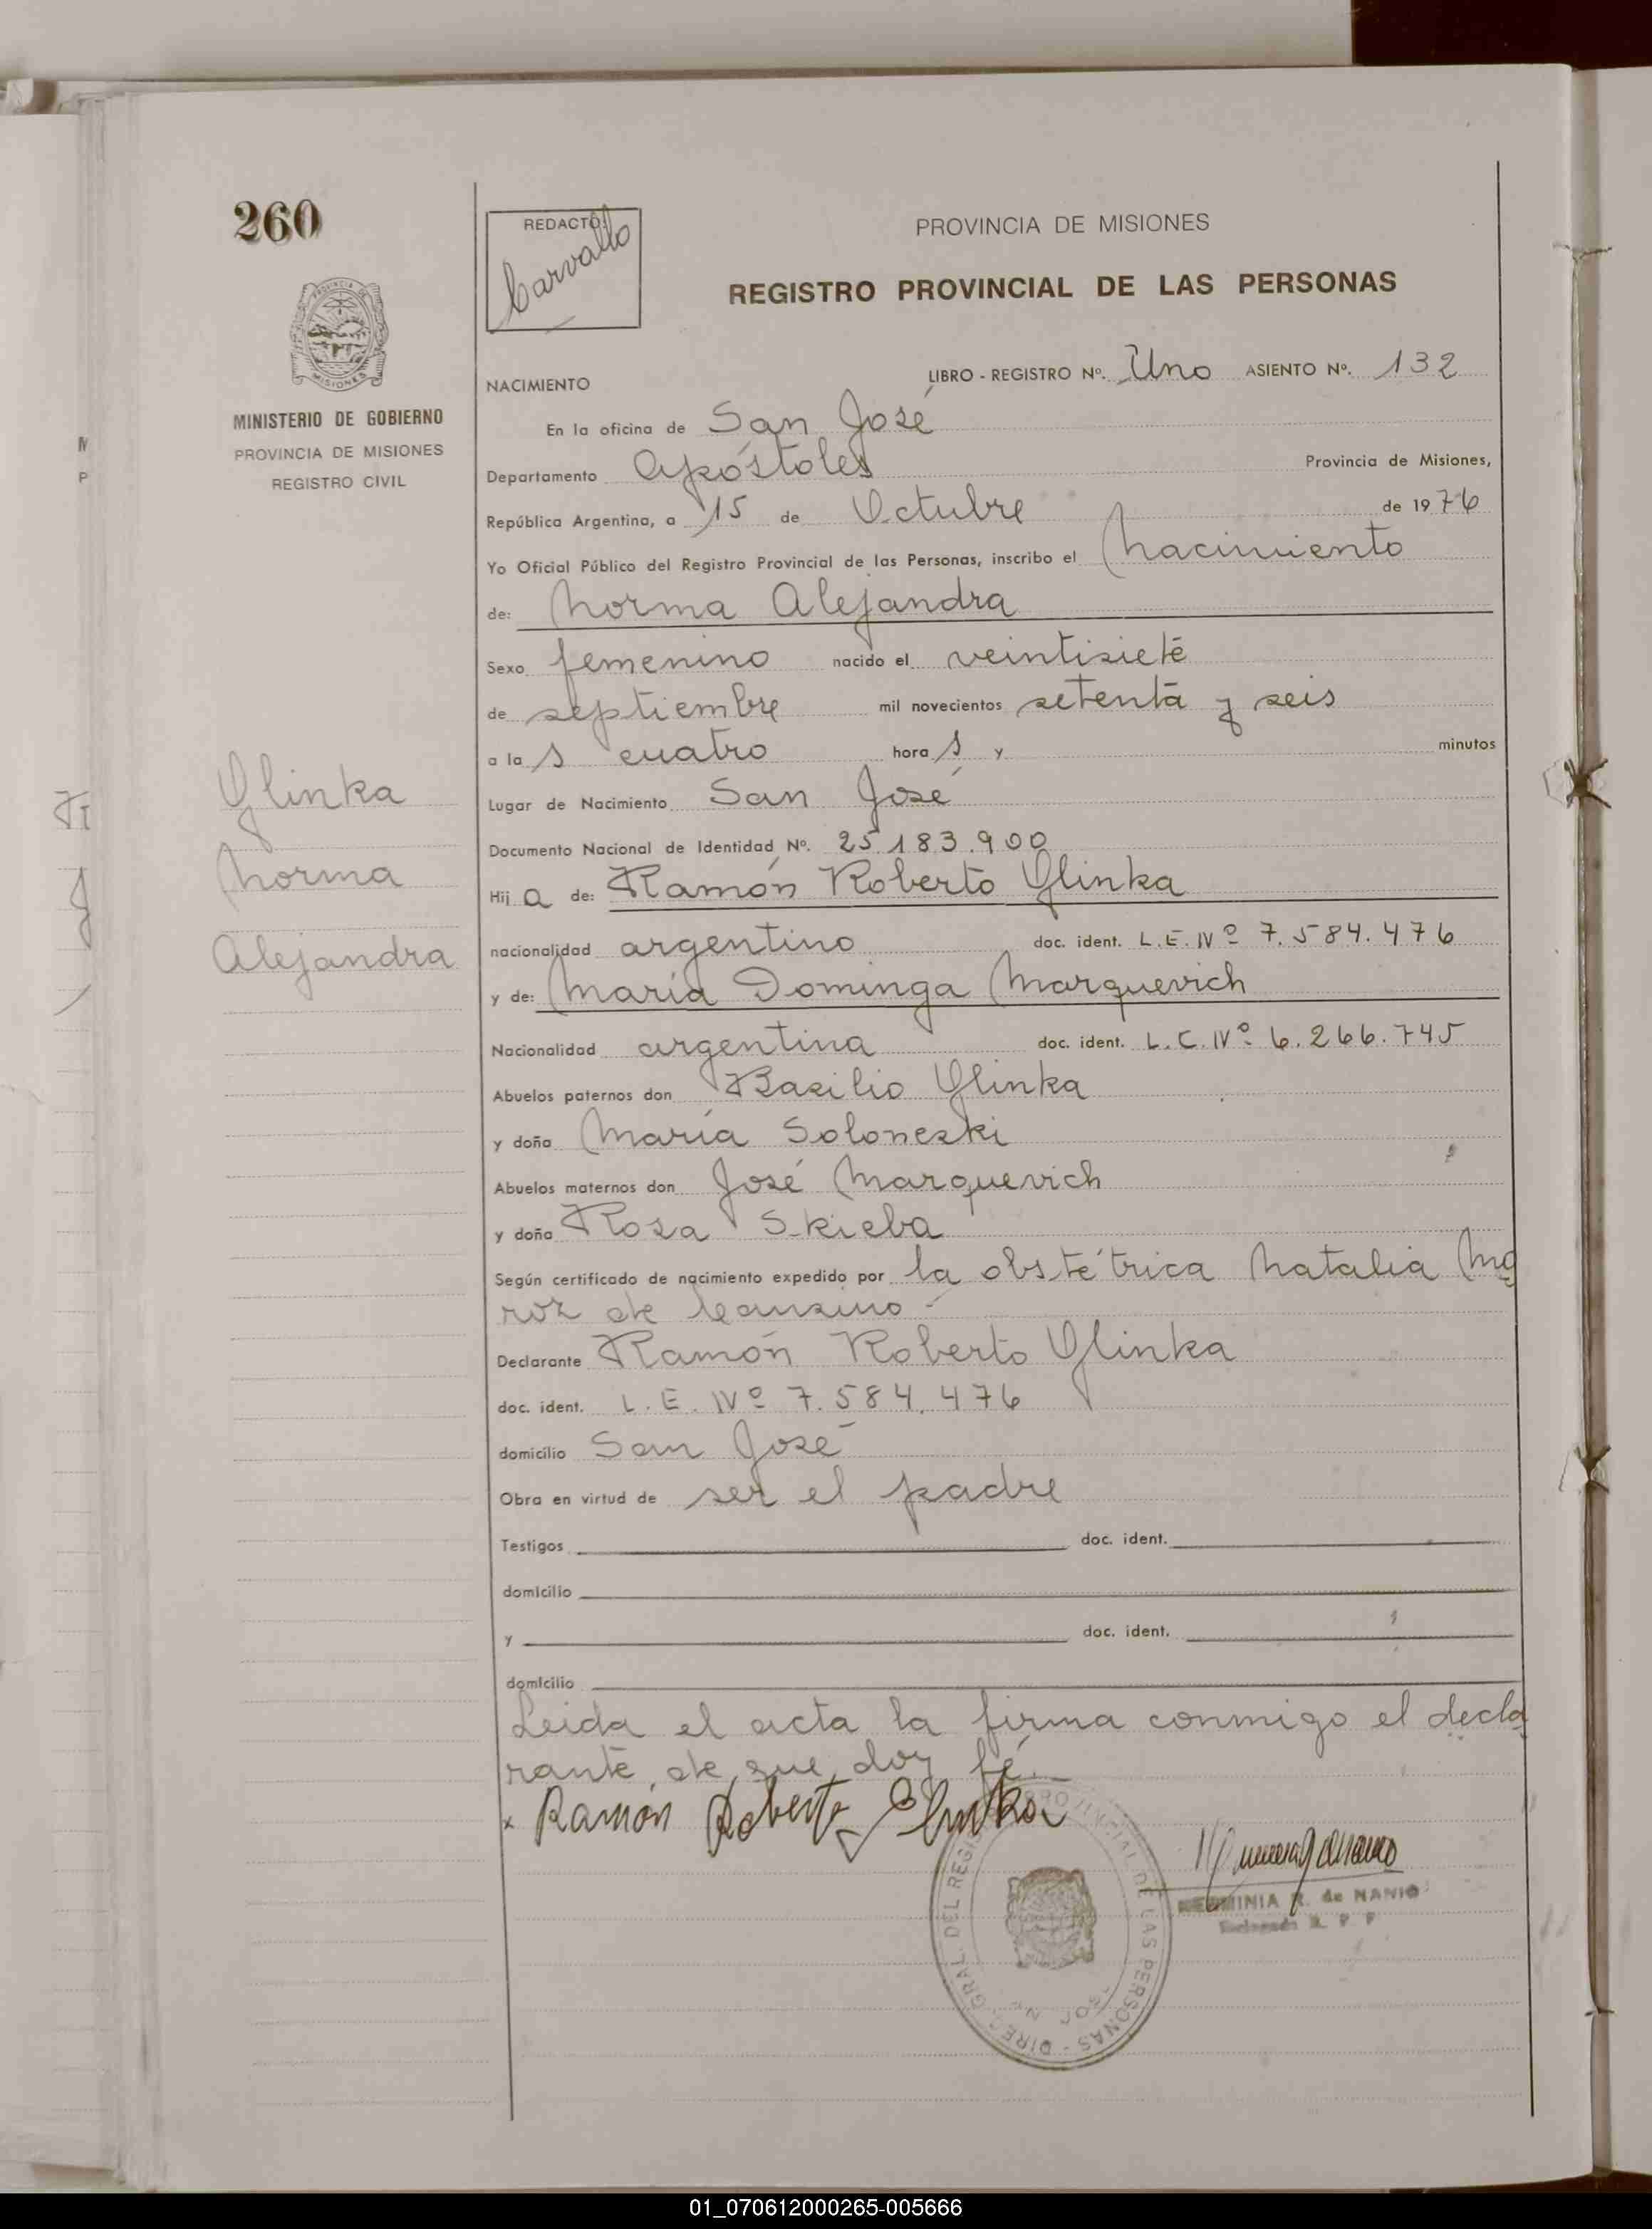 260
REDACTO:
Carvallo
PROVINCIA DE MISIONES
REGISTRO PROVINCIAL DE LAS PERSONAS
PROVINCIA DE
MISIONES
MINISTERIO DE GOBIERNO
PROVINCIA DE MISIONES
REGISTRO CIVIL
Glinka
Norma
Alejandra
NACIMIENTO LIBRO - REGISTRO Nº. Uno ASIENTO Nº. 132
En la oficina de San José
Departamento Apóstoles Provincia de Misiones,
República Argentina, a 15 de Octubre de 1976
Yo Oficial Público del Registro Provincial de las Personas, inscribo el Nacimiento
de: Norma Alejandra
Sexo femenino nacido el veintisiete
de septiembre mil novecientos setenta y seis
a la s cuatro hora s y minutos
Lugar de Nacimiento San José
Documento Nacional de Identidad Nº. 25.183.900
Hij a de: Ramón Roberto Glinka
nacionalidad argentino doc. ident. L.E. Nº 7.584.476
y de: María Dominga Marquevich
Nacionalidad argentina doc. ident. L.C. Nº 6.266.745
Abuelos paternos don Basilio Glinka
y doña María Soloneski
Abuelos maternos don José Marquevich
y doña Rosa Skieba
Según certificado de nacimiento expedido por la obstétrica Natalia Mo
roz de
Declarante Ramón Roberto Glinka
doc. ident. L.E. Nº 7.584.476
domicilio San José
Obra en virtud de ser el padre
Testigos doc. ident.
domicilio
y doc. ident.
domicilio
Leida el acta la firma conmigo el decla
rante, de que doy fé.
x Ramón Roberto Glinka
HERMINIA R. de NANIO
R. P. P.
DIREC. GRAL. DEL REGISTRO PROVINCIAL DE LAS PERSONAS
SAN JOSE
01_070612000265-005666